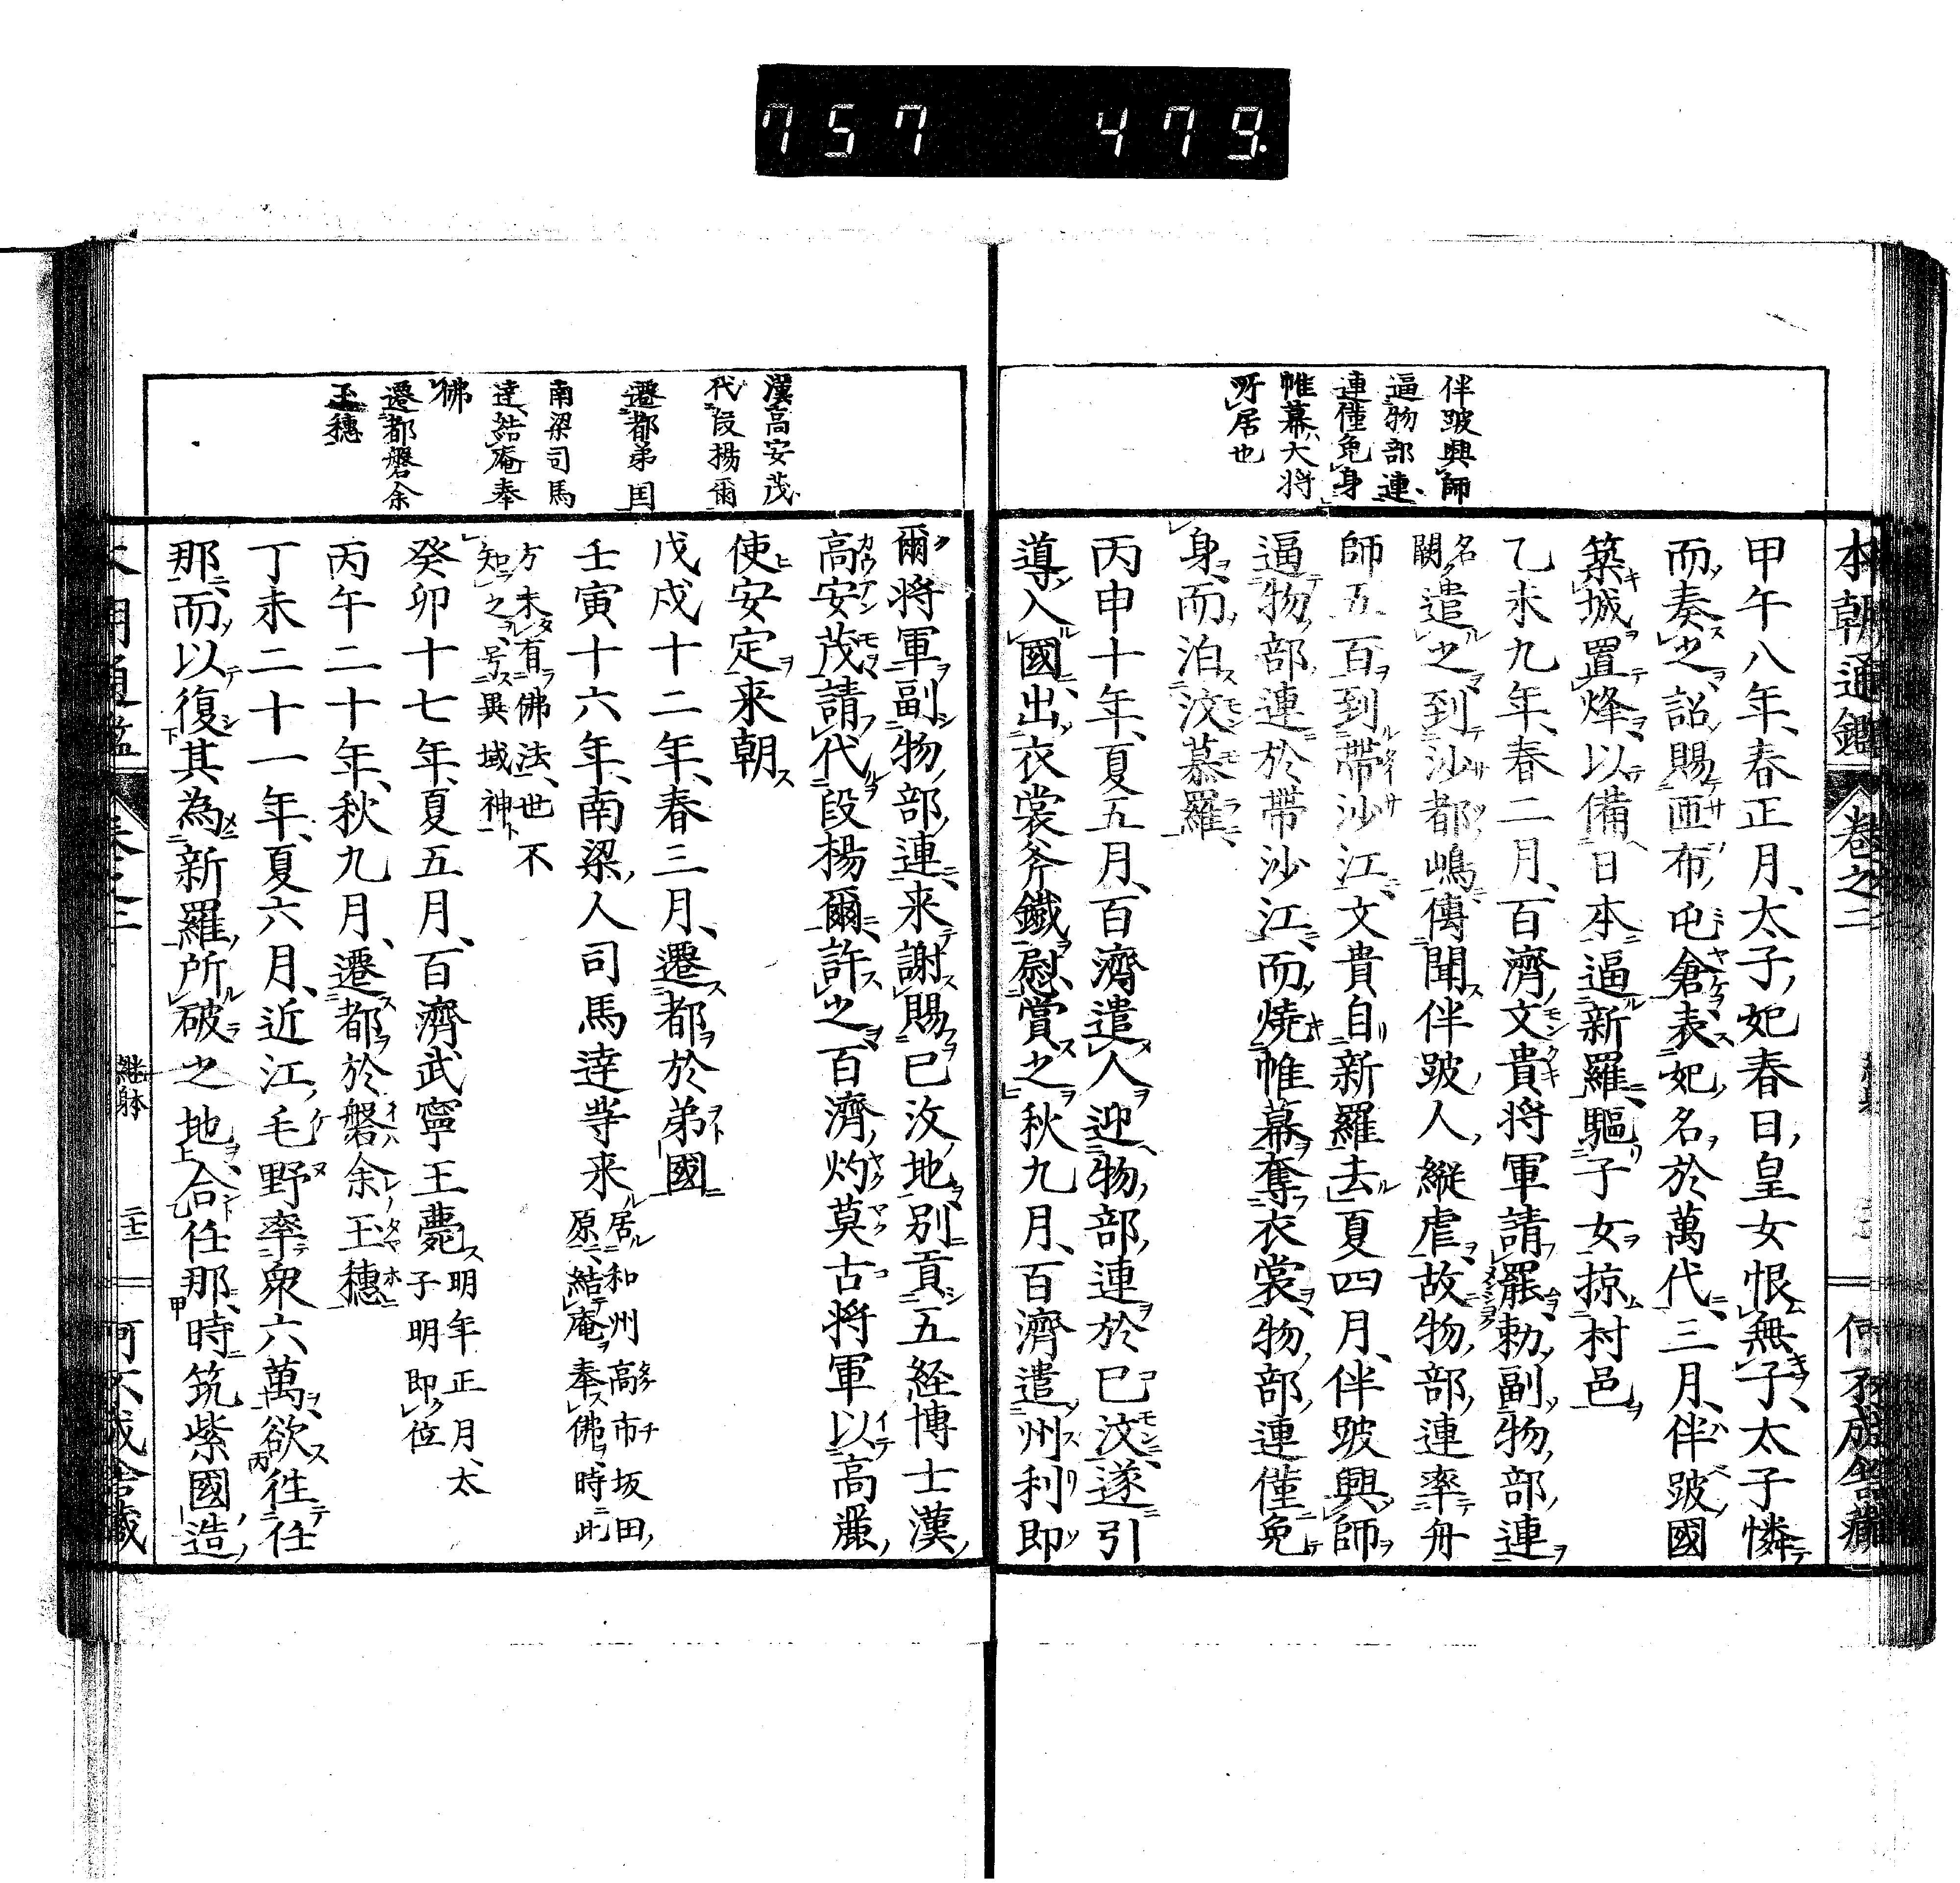 757 479.
本朝通鑑 卷之二
伴跛興師
逼物部連
連僅免身
帷幕大将
所居也
甲午八年春正月太子妃春日皇女恨無子太子憐
而奏之詔賜匝布屯倉表妃名於萬代三月伴跛國
築城置烽以備日本逼新羅驅子女掠村邑
乙未九年春二月百濟文貴将軍請罷勅副物部連
闕名遣之到沙都嶋傳聞伴跛人縦虐故物部連率舟
師五百到帶沙江文貴自新羅去夏四月伴跛興師
逼物部連於帶沙江而焼帷幕奪衣裳物部連僅免
身而泊汶慕羅
丙申十年夏五月百濟遣人迎物部連於巳汶遂引
導入國出衣裳斧鐵慰賞之秋九月百濟遣州利即
漢高安茂
代段揚爾
遷都弟国
南梁司馬
達結庵奉
佛
遷都磐余
玉穗
爾将軍副物部連来謝賜已汶地別貢五経博士漢
高安茂請代段揚爾許之百濟灼莫古将軍以高麗
使安定来朝
戊戌十二年春三月遷都於弟國
壬寅十六年南梁人司馬達等来居和州高市坂田
原結庵奉佛時此
方未有佛法世不
知之号異域神
癸卯十七年夏五月百濟武寧王薨明年正月太
子明即位
丙午二十年秋九月遷都於磐余玉穗
丁未二十一年夏六月近江毛野率衆六萬欲往任
那而以復其為新羅所破之地合任那時筑紫國造
継躰